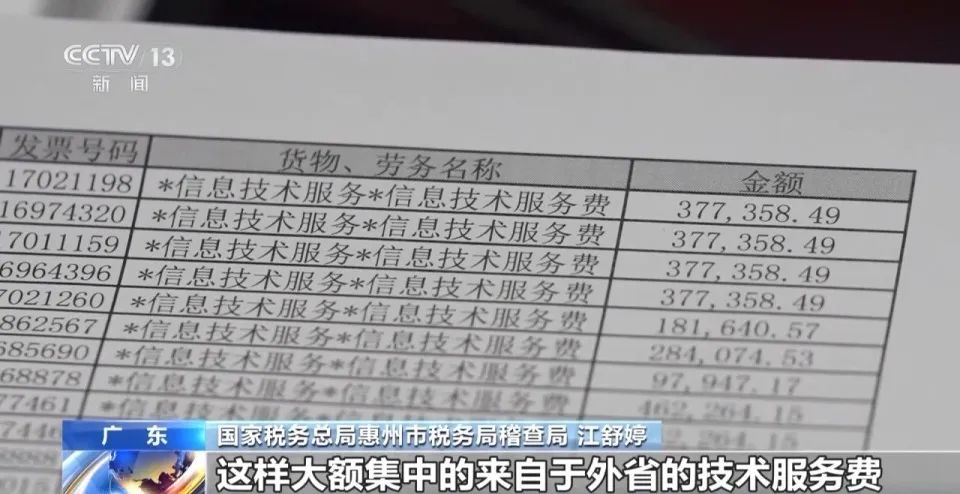 CCTV 13
新闻
发票号码 货物、劳务名称 金额
17021198 *信息技术服务*信息技术服务费 377,358.49
16974320 *信息技术服务*信息技术服务费 377,358.49
17011159 *信息技术服务*信息技术服务费 377,358.49
6964396 *信息技术服务*信息技术服务费 377,358.49
7021260 *信息技术服务*信息技术服务费 181,640.57
862567 *信息技术服务*信息技术服务费 284,074.53
685690 *信息技术服务*信息技术服务费 97,947.17
68878 *信息技术服务*信息技术服务费 462,264.15
77461 *信息技术服务*信息技术服务
广东 国家税务总局惠州市税务局稽查局 江舒婷
这样大额集中的来自于外省的技术服务费